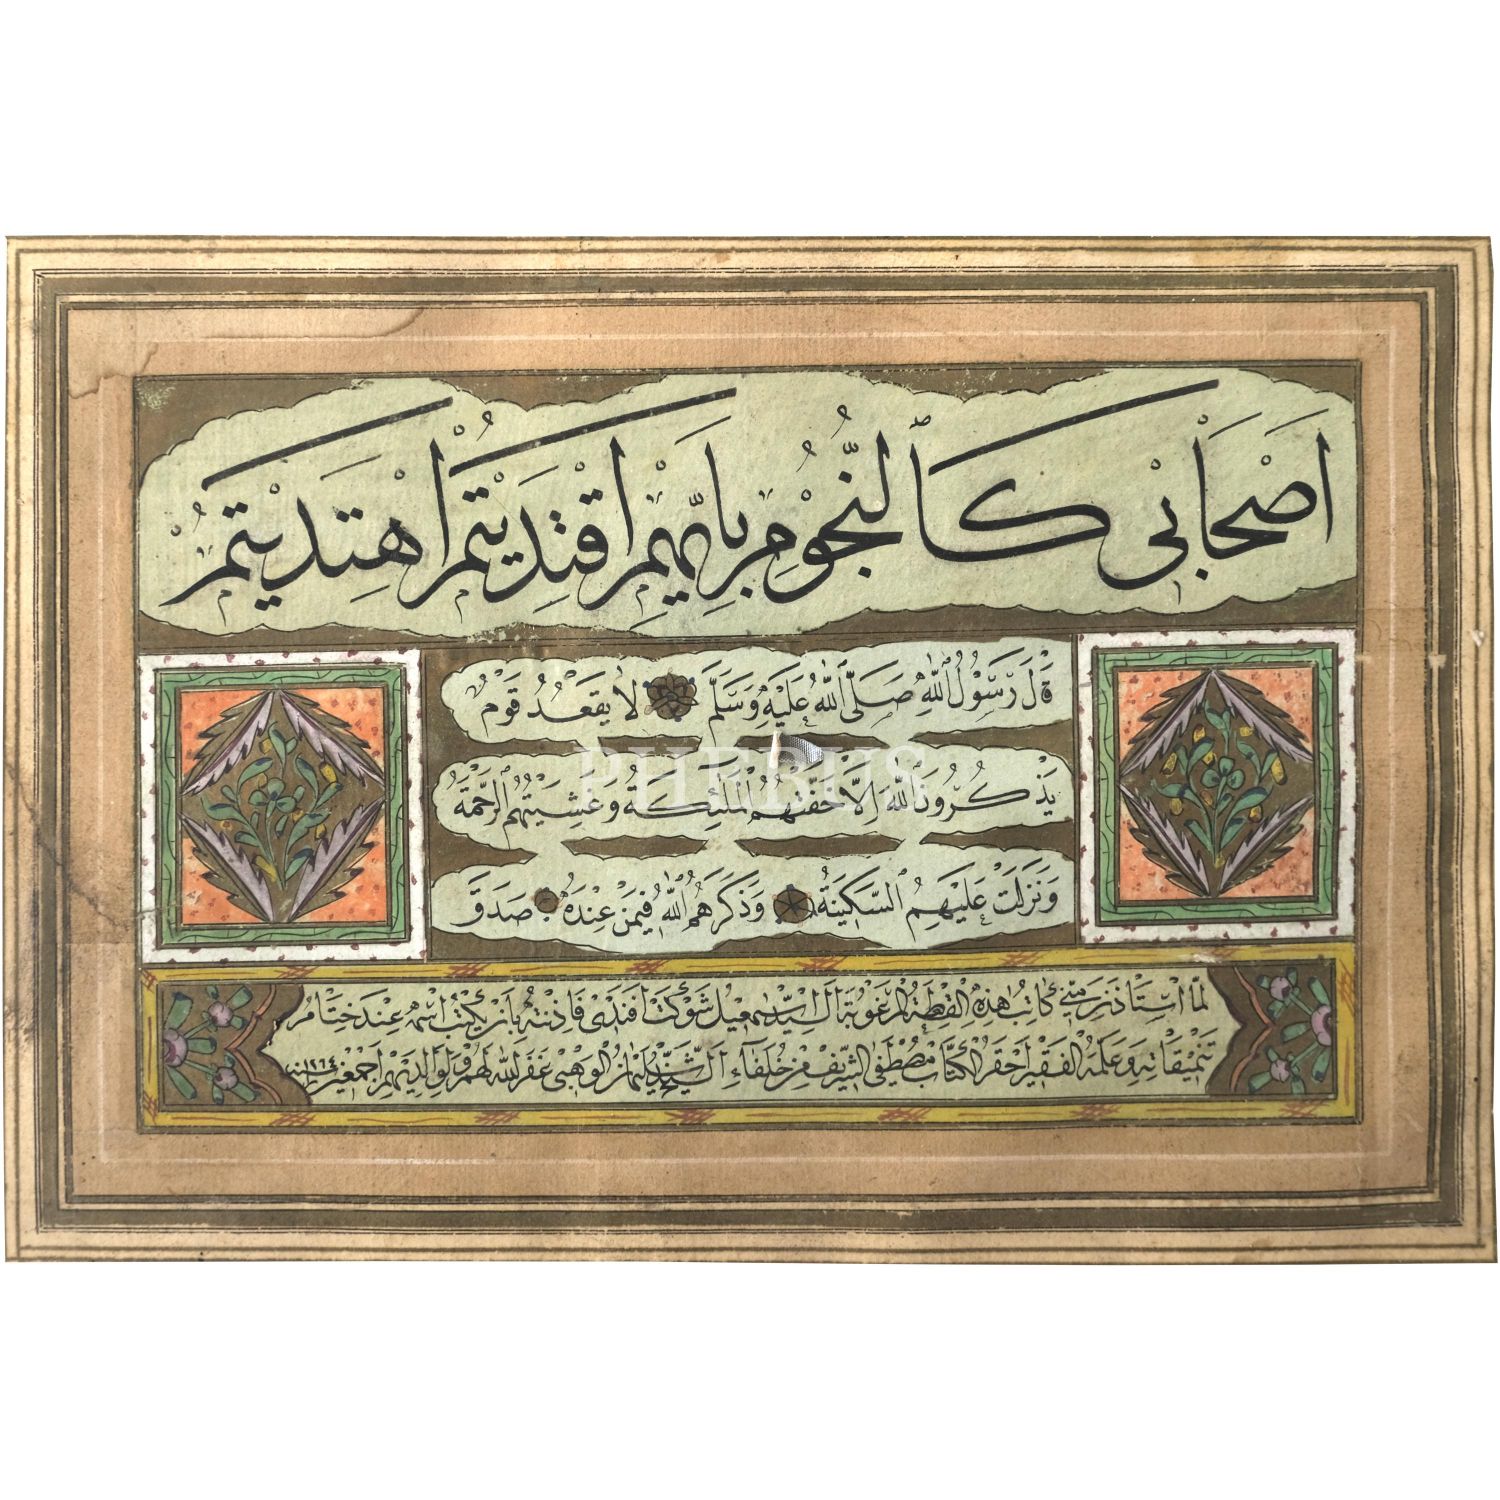 اَصْحَابِى كَالنُّجُومِ بِاَيِّهِمْ اقْتَدَيْتُمْ اهْتَدَيْتُمْ
قَالَ رَسُولُ اللهِ صَلَّى اللهُ عَلَيْهِ وَسَلَّمَ لَا يَقْعُدُ قَوْمٌ
يَذْكُرُونَ اللهَ اِلَّا حَفَّتْهُمُ الْمَلٰئِكَةُ وَغَشِيَتْهُمُ الرَّحْمَةُ
وَنَزَلَتْ عَلَيْهِمِ السَّكِينَةُ وَذَكَرَهُمُ اللهُ فِيمَنْ عِنْدَهُ صَدَقَ
لما استاذن منى كاتب هذه القطعة المرغوبة السيد اسمعيل شوكت افندى فاذنته بان يكتب اسمه عند ختام
تنميقاته وعلمه الفقير احقر الكتاب مصطفى الشريف من خلفاء الشيخ سليمان الوهبى غفر الله لهم ولوالديهم اجمعين سنة ١٢٦٤
PHEBUS